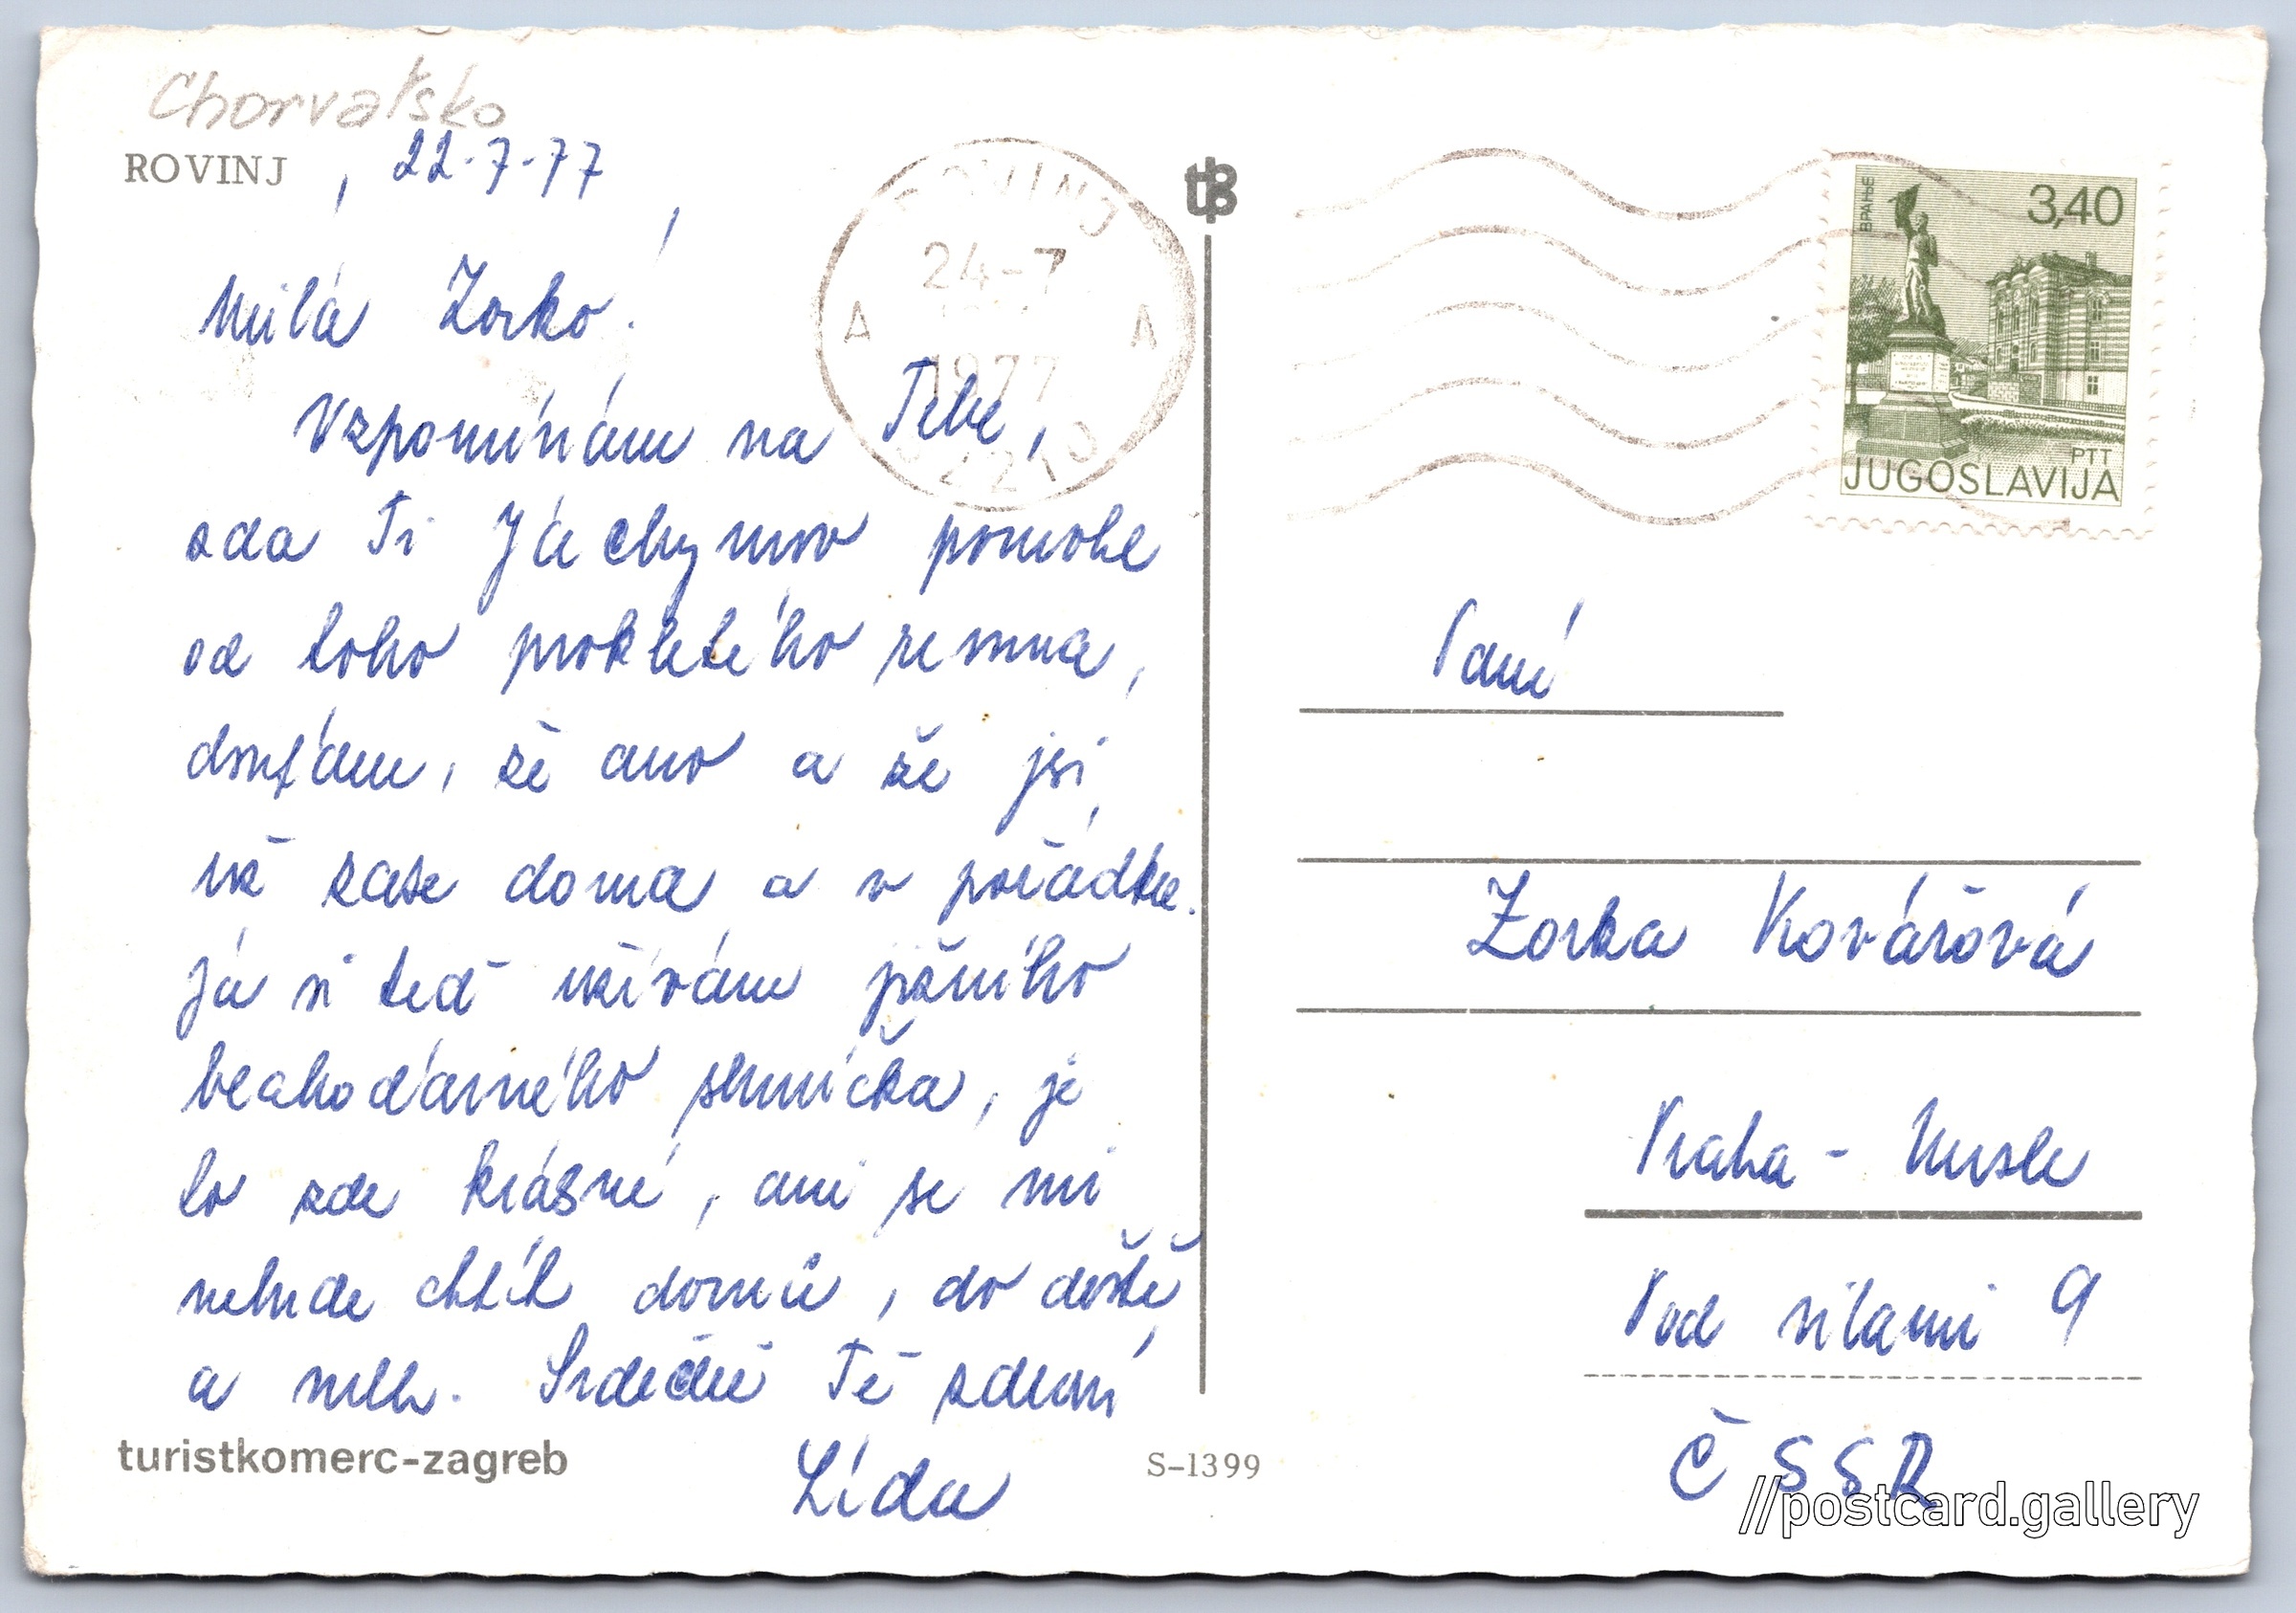 Chorvatsko
ROVINJ , 22.7.77
Milá Zorko!
Vzpomínám na Tebe,
zda Ti Jáchymov pomohl
od toho prokletého revma,
doufám, že ano a že jsi
už zase doma a v pořádku.
Já si teď užívám jižního
blahodárného sluníčka, je
to zde krásné, ani se mi
nebude chtít domů, do deště
a mlh. Srdečně Tě zdraví
Lída
turistkomerc-zagreb
S-1399
ROVINJ
24-7
1977
A A
52210
tB
ВРАЊЕ
3,40
PTT
JUGOSLAVIJA
Paní
Zorka Kovářová
Praha - Nusle
Pod silami 9
ČSSR
//postcard.gallery